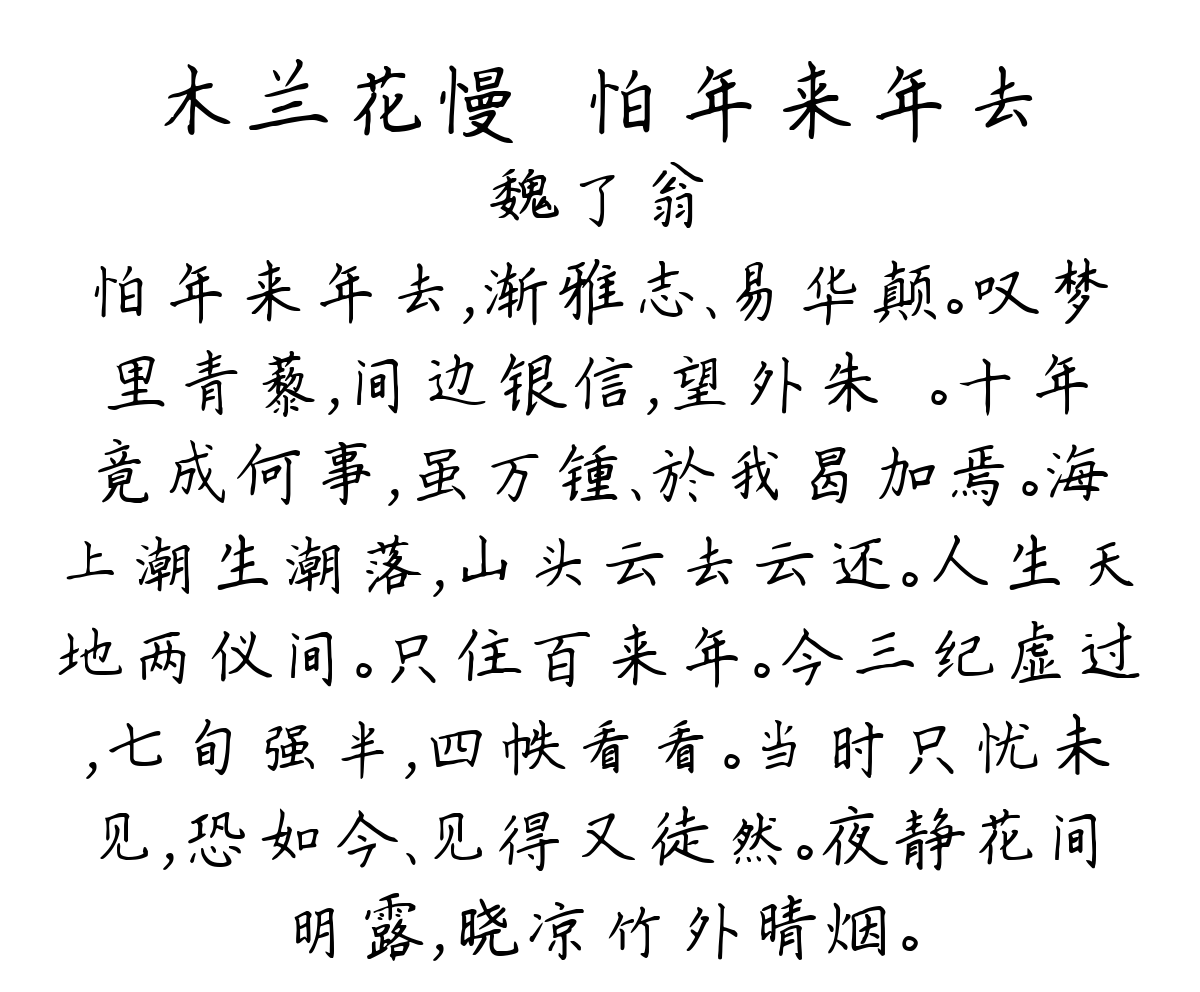 木兰花慢 怕年来年去
魏了翁
怕年来年去,渐雅志、易华颠。叹梦
里青藜,间边银信,望外朱 。十年
竟成何事,虽万锺、於我曷加焉。海
上潮生潮落,山头云去云还。人生天
地两仪间。只住百来年。今三纪虚过
,七旬强半,四帙看看。当时只忧未
见,恐如今、见得又徒然。夜静花间
明露,晓凉竹外晴烟。